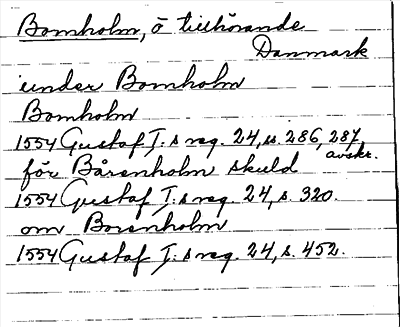 Bornholm, ö tillhörande
Danmark
under Bornholm
Bornholm
1554 Gustaf I:s reg. 24, ss. 286, 287,
avskr.
för Bårenholm skuld
1554 Gustaf I:s reg. 24, s. 320.
om Borenholm
1554 Gustaf I:s reg. 24, s. 452.